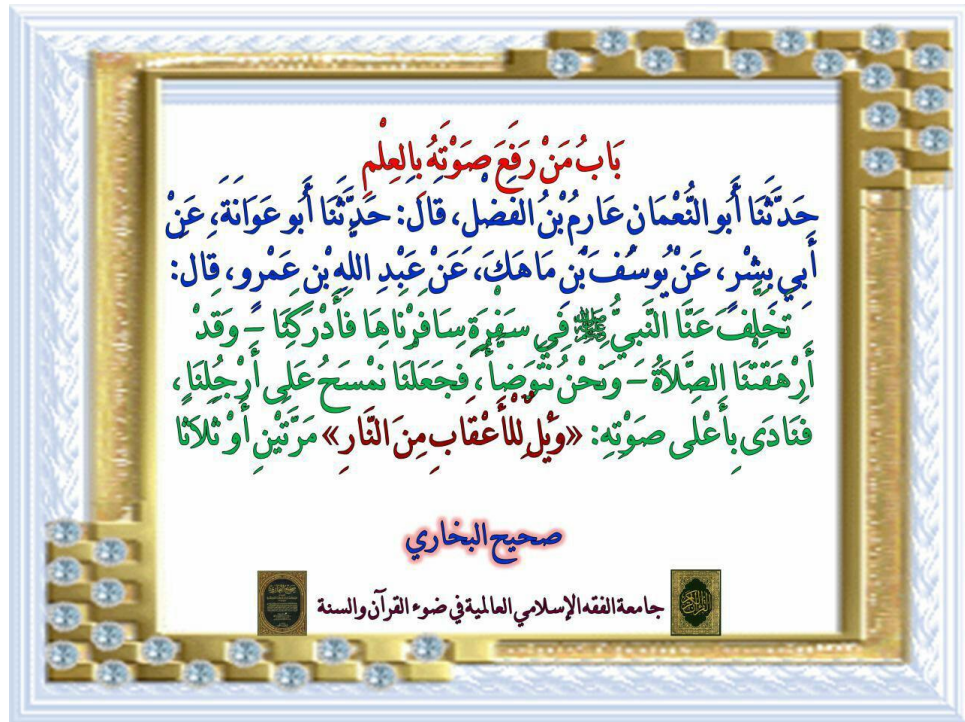 بَابُ مَنْ رَفَعَ صَوْتَهُ بِالعِلْمِ
حَدَّثَنَا أَبُو النُّعْمَانِ عَارِمُ بْنُ الفَضْلِ، قَالَ: حَدَّثَنَا أَبُو عَوَانَةَ، عَنْ
أَبِي بِشْرٍ، عَنْ يُوسُفَ بْنِ مَاهَكَ، عَنْ عَبْدِ اللَّهِ بْنِ عَمْرٍو، قَالَ:
تَخَلَّفَ عَنَّا النَّبِيُّ ﷺ فِي سَفْرَةٍ سَافَرْنَاهَا فَأَدْرَكَنَا – وَقَدْ
أَرْهَقَتْنَا الصَّلاَةُ – وَنَحْنُ نَتَوَضَّأُ، فَجَعَلْنَا نَمْسَحُ عَلَى أَرْجُلِنَا،
فَنَادَى بِأَعْلَى صَوْتِهِ: «وَيْلٌ لِلْأَعْقَابِ مِنَ النَّارِ» مَرَّتَيْنِ أَوْ ثَلاَثًا
صحيح البخاري
جامعة الفقه الإسلامي العالمية في ضوء القرآن والسنة